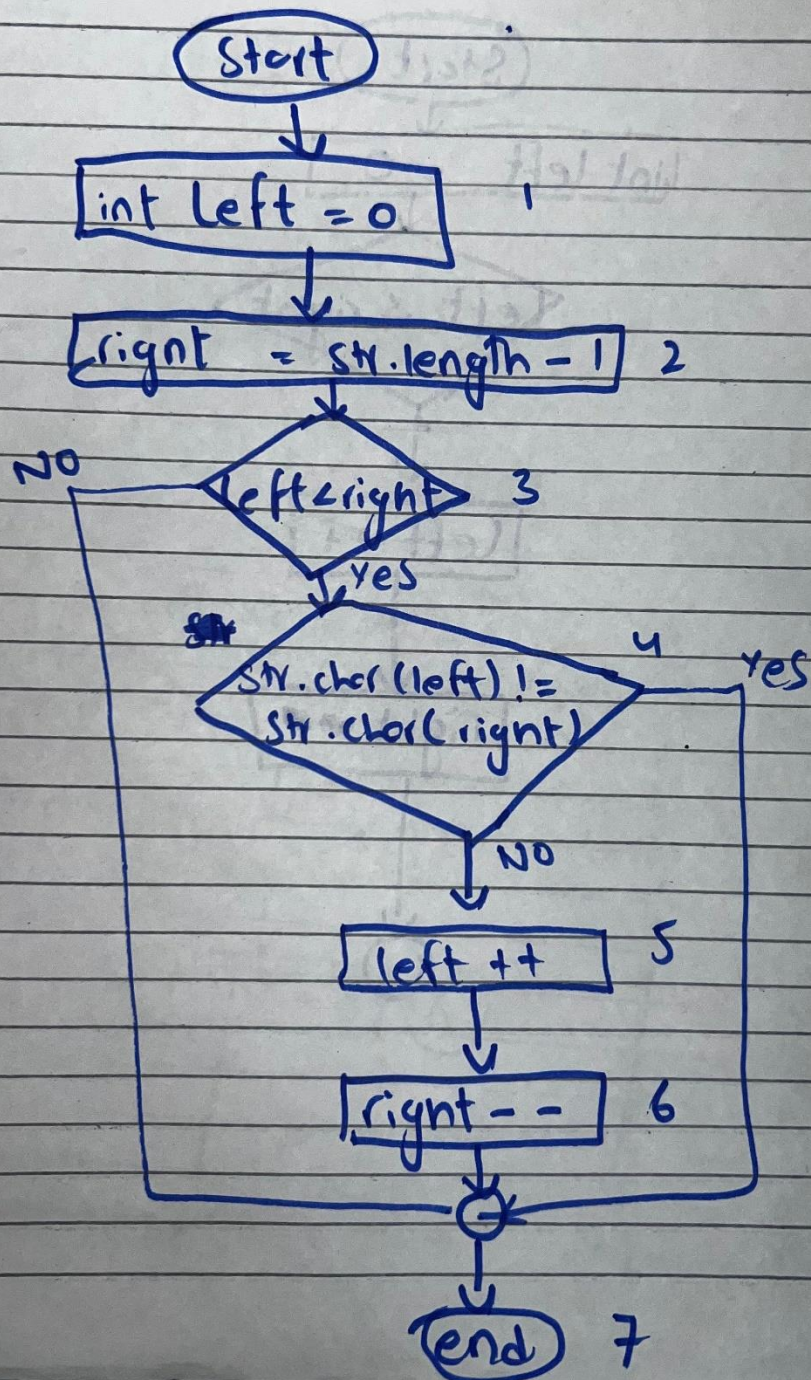 Start
int left = 0 1
right = str.length - 1 2
NO
left<right 3
yes
str.char(left) != 4 Yes
str.char(right)
NO
left ++ 5
right - - 6
end 7